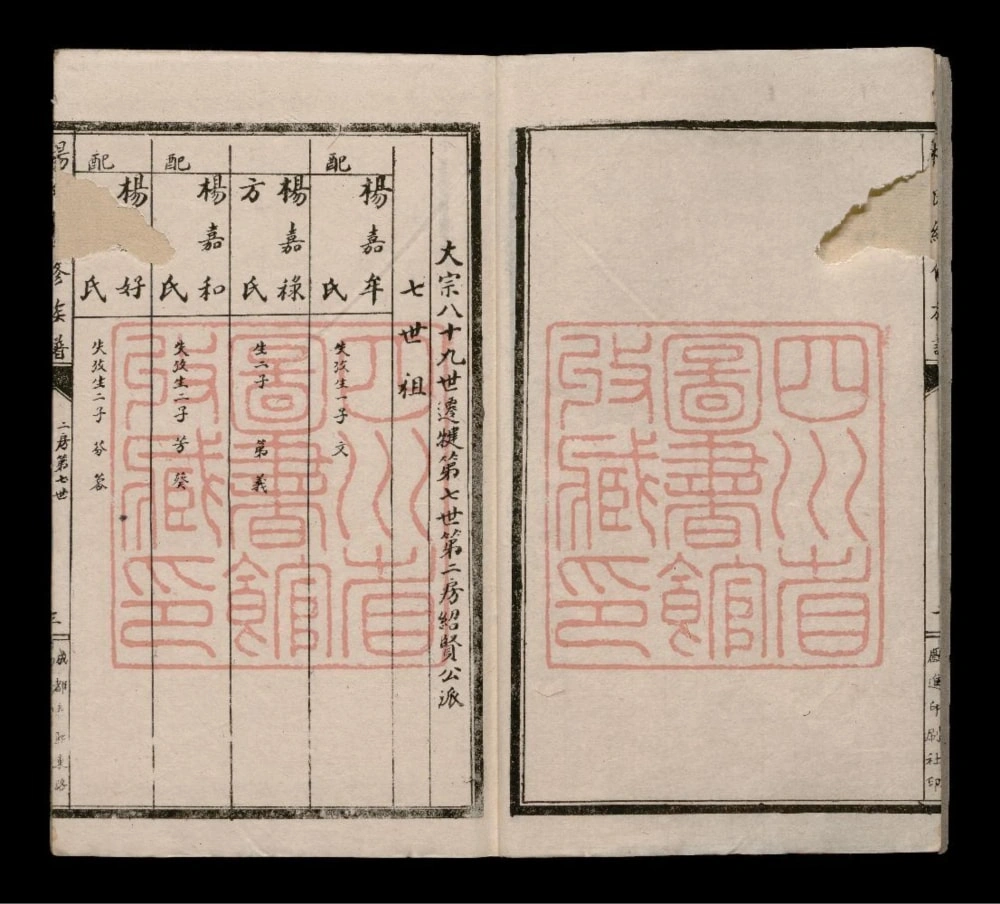 大宗八十九世遷犍第七世第二房紹賢公派
七世祖
楊嘉牟
配 氏
失攷生一子 文
楊嘉祿
方氏
生二子 第 義
楊嘉和
配 氏
失攷生二子 芳 葵
楊 好
配 氏
失攷生二子 芬
楊 修族譜
二房第七世
三
成都
四川省
圖書館
攷藏印
四川省
圖書館
攷藏印
印刷社印